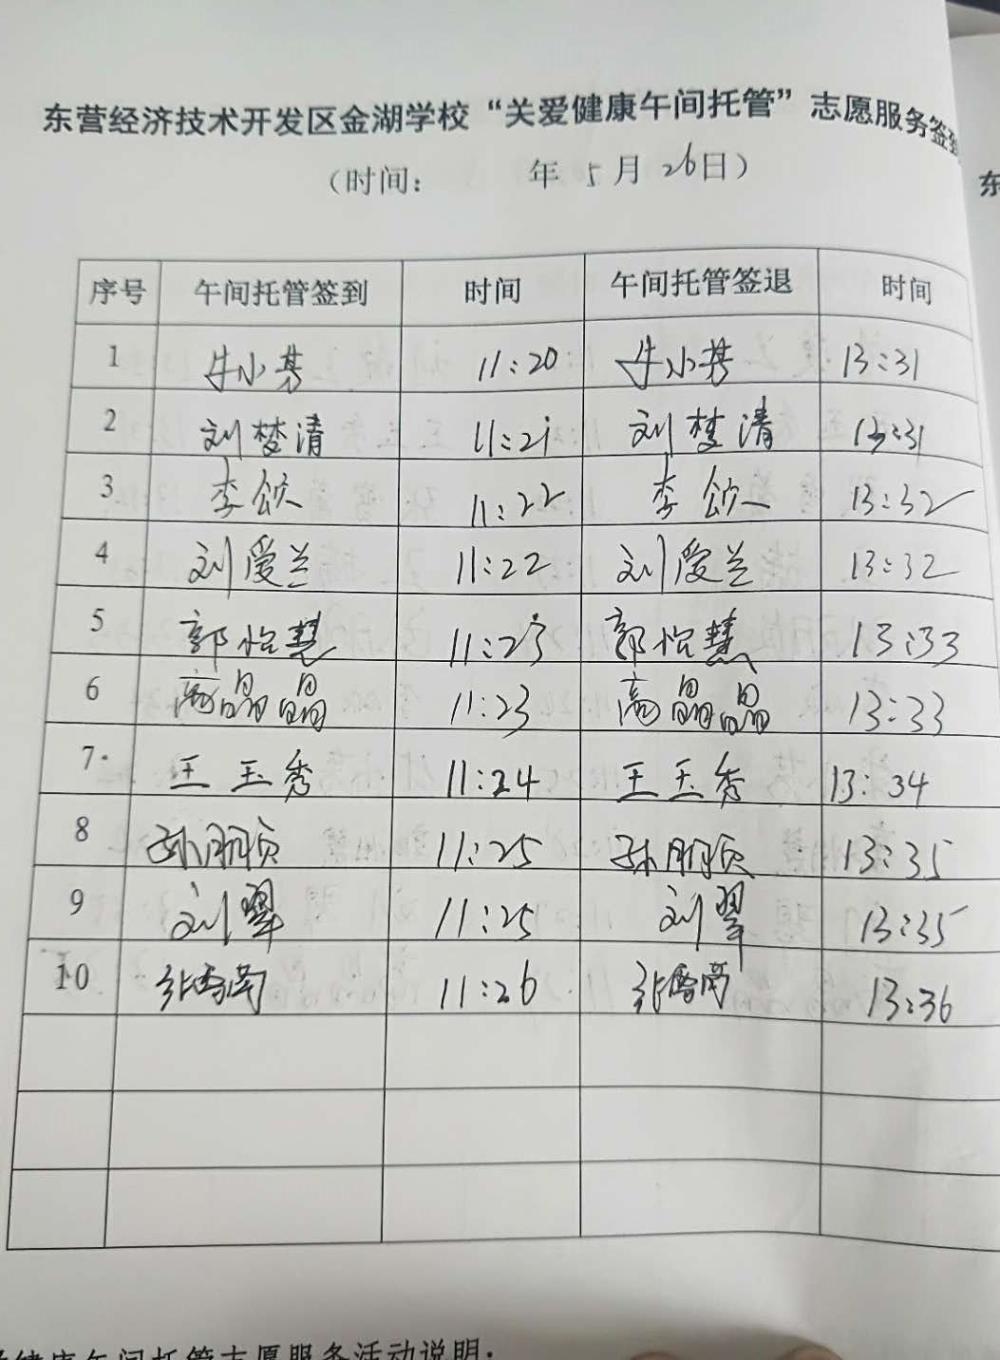 东营经济技术开发区金湖学校“关爱健康午间托管”志愿服务签到
(时间: 年 5 月 26日)
东
序号 午间托管签到 时间 午间托管签退 时间
1 牛小芳 11:20 牛小芳 13:31
2 刘梦清 11:21 刘梦清 13:31
3 李欣 11:22 李欣 13:32
4 刘爱兰 11:22 刘爱兰 13:32
5 郭怡慧 11:23 郭怡慧 13:33
6 高晶晶 11:23 高晶晶 13:33
7 王玉秀 11:24 王玉秀 13:34
8 11:25 13:35
9 刘翠 11:25 刘翠 13:35
10 11:26 13:36
健康午间托管志愿服务活动说明: